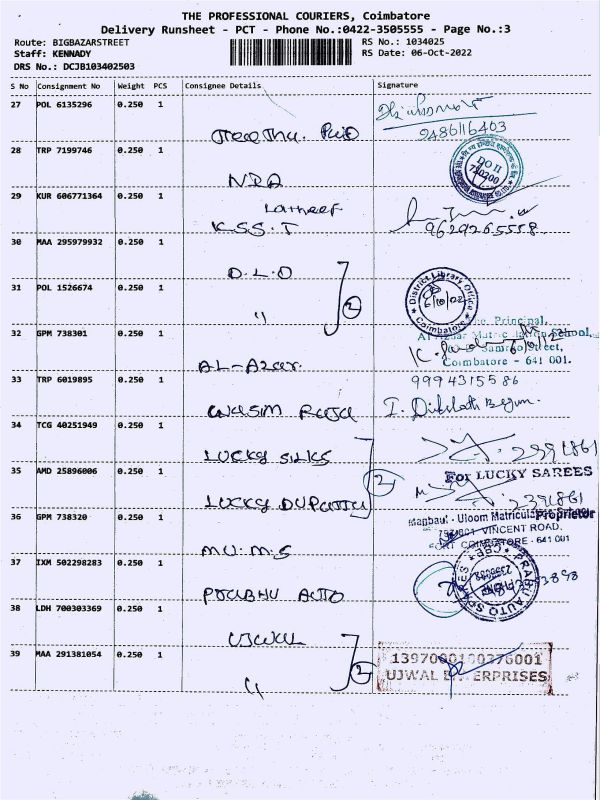 THE PROFESSIONAL COURIERS, Coimbatore
Delivery Runsheet - PCT - Phone No.:0422-3505555 - Page No.:3
Route: BIGBAZARSTREET
RS No.: 1034025
Staff: KENNADY
RS Date: 06-Oct-2022
DRS No.: DCJB103402503
S No Consignment No Weight PCS Consignee Details Signature
27 POL 6135296 0.250 1
9486116403
28 TRP 7199746 0.250 1
NIA
DO II
29 KUR 606771364 0.250 1
Latheef
K.S.S.T
9629265558
30 MAA 295979932 0.250 1
D.L.O
31 POL 1526674 0.250 1
"
2
District Library Office
6/10/22
Coimbatore
32 GPM 738301 0.250 1
AL-Azar.
Principal,
School,
Street,
Coimbatore - 641 001.
33 TRP 6019895 0.250 1
9994315586
Wasim Raja
I. Dilshath Begum.
34 TCG 40251949 0.250 1
LUCKY SILKS
2391861
35 AMD 25896006 0.250 1
2
For LUCKY SAREES
LUCKY DUPATTA
2391861
Proprietor
36 GPM 738320 0.250 1
Manbaul - Uloom Matriculation School
VINCENT ROAD.
FORT COIMBATORE - 641 001
M.U.M.S
37 IXM 502298283 0.250 1
PRABHU AUTO
PRABU AUTO SPARES
CBE
38 LDH 700303369 0.250 1
UJWAL
39 MAA 291381054 0.250 1
"
2
1397000100376001
UJWAL ENTERPRISES